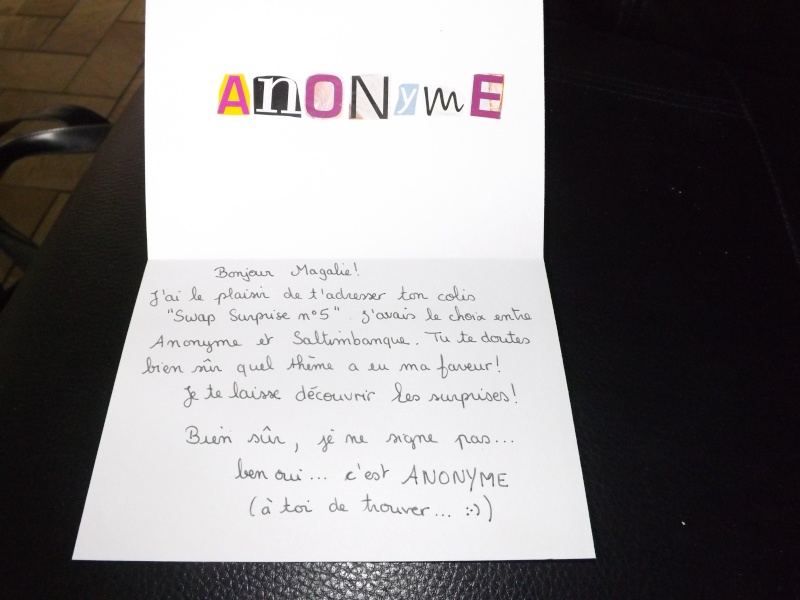 AnONymE
Bonjour Magalie!
J'ai le plaisir de t'adresser ton colis
"Swap Surprise n°5" J'avais le choix entre
Anonyme et Saltimbanque. Tu te doutes
bien sûr quel thème a eu ma faveur!
Je te laisse découvrir les surprises!
Bien sûr, je ne signe pas...
ben oui... c'est ANONYME
(à toi de trouver... :-))